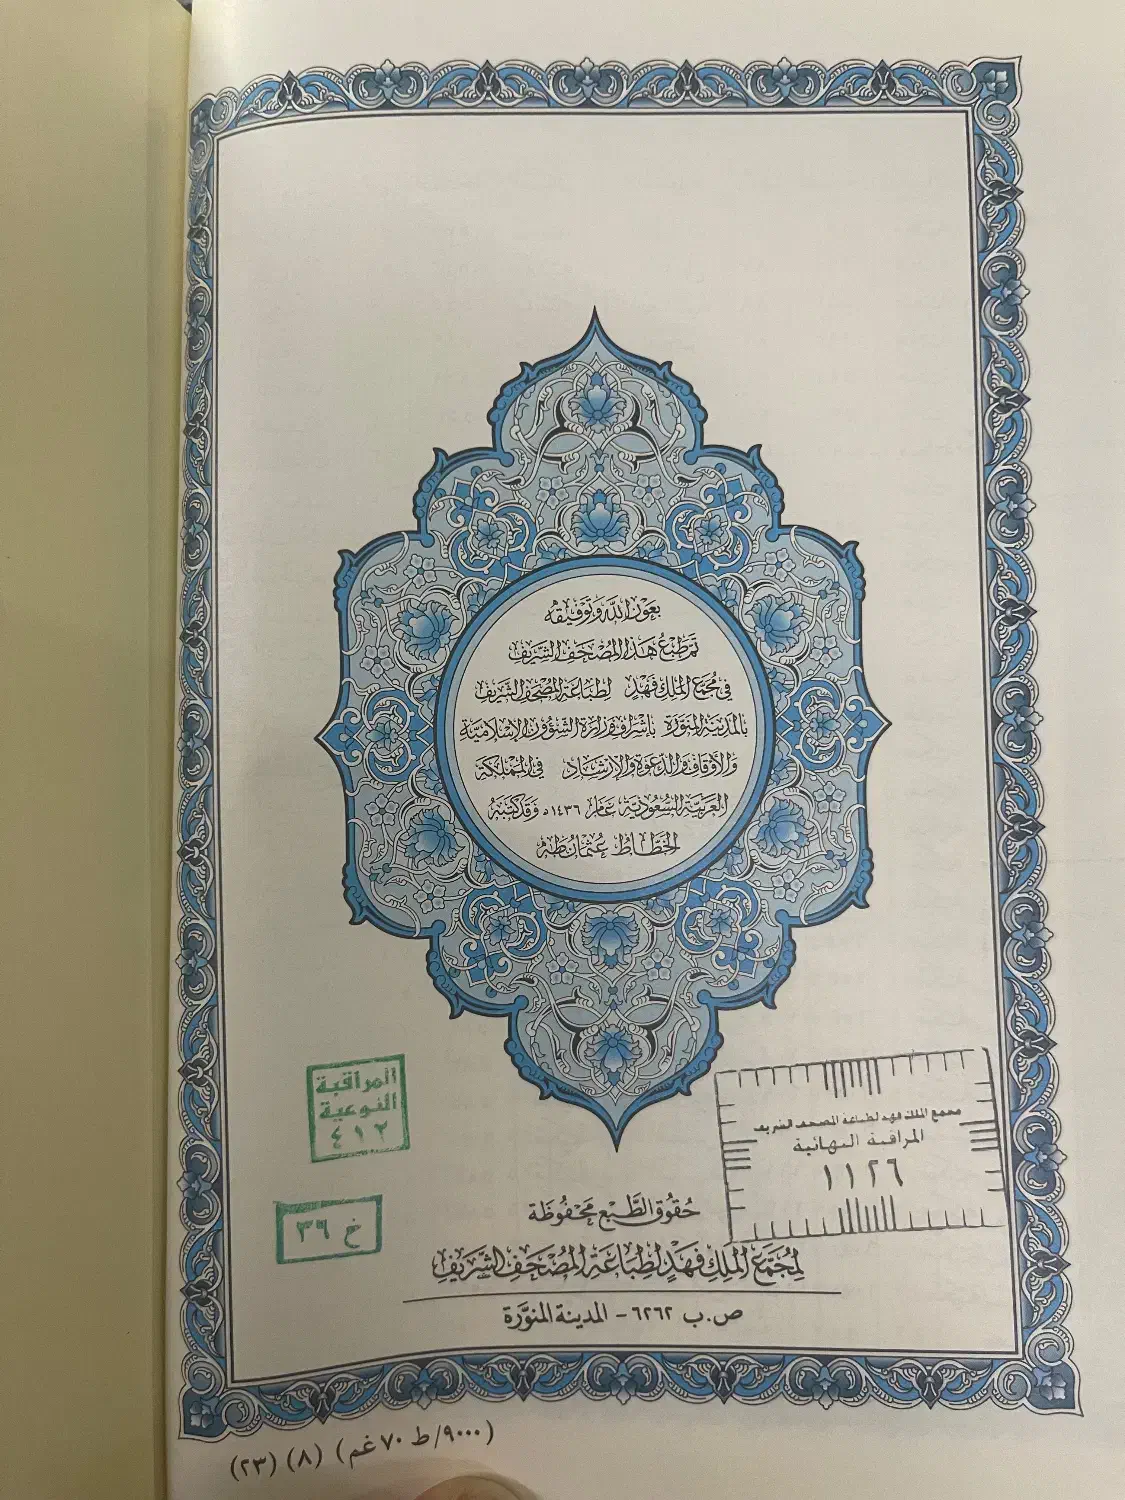 بعون الله وتوفيقه
تم طبع هذا المصحف الشريف
في مجمع الملك فهد لطباعة المصحف الشريف
بالمدينة المنورة بإشراف وزارة الشؤون الإسلامية
والأوقاف والدعوة والإرشاد في المملكة
العربية السعودية عام ١٤٣٦ه وقد كتبه
الخطاط عثمان طه
المراقبة
النوعية
٤١٢
مجمع الملك فهد لطباعة المصحف الشريف
المراقبة النهائية
١١٢٦
خ ٣٩
حقوق الطبع محفوظة
لمجمع الملك فهد لطباعة المصحف الشريف
ص.ب ٦٢٦٢ - المدينة المنورة
(٩٠٠٠/ط ٧٠ غم) (٨) (٢٣)